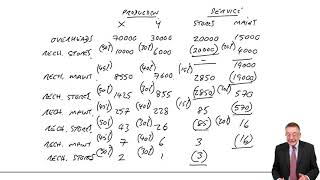 PRODUCTION SERVICE
X Y STORES MAINT
OVERHEADS 70000 30000 20000 15000
RECH. STORES (50%) 10000 (30%) 6000 (20000) (20%) 4000
19000
RECH. MAINT (45%) 8550 (40%) 7600 (15%) 2850 (19000)
RECH. STORES (50%) 1425 (30%) 855 (2850) (20%) 570
RECH. MAINT (45%) 257 (40%) 228 (15%) 85 (570)
RECH. STORES (50%) 43 (30%) 26 (85) (20%) 16
RECH. MAINT (45%) 7 (40%) 6 3 (16)
RECH. STORES (50%) 2 (30%) 1 (3)